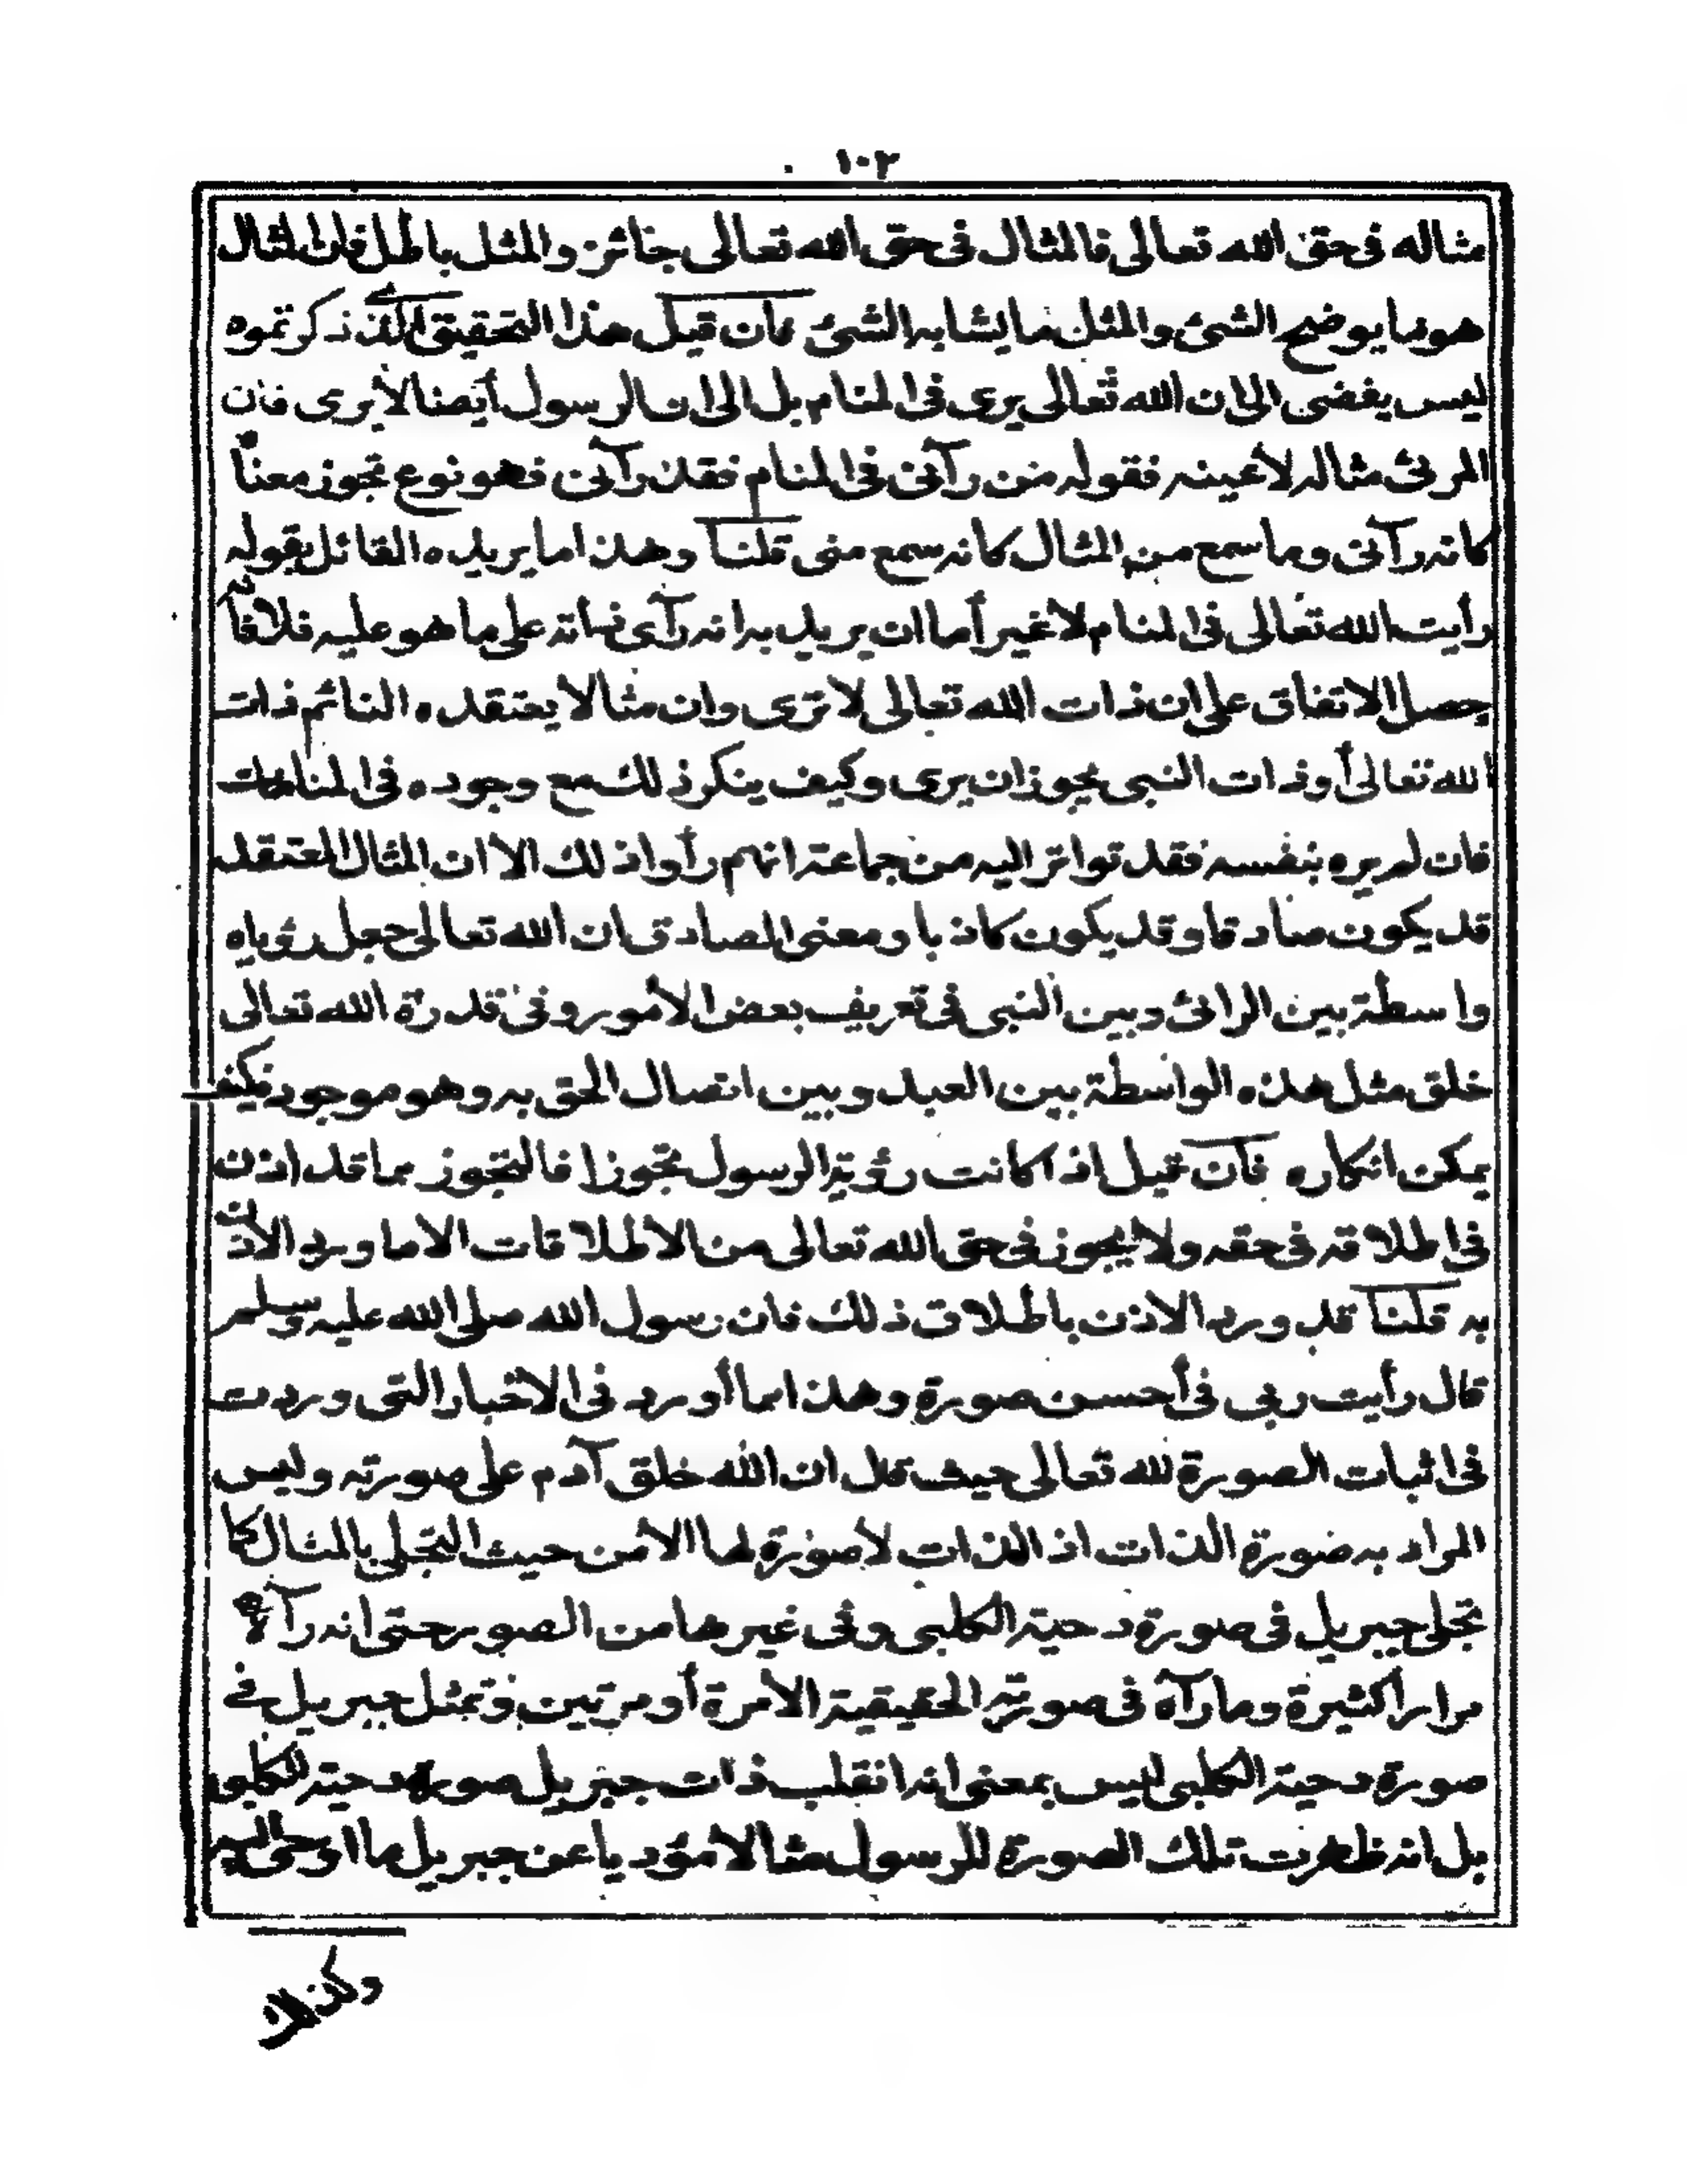 ١٠٢
مثاله فى حق الله تعالى فالمثال فى حق الله تعالى جائز والمثل باطل فان المثال
هو ما يوضح الشئ والمثل ما يشابه الشئ فان قيل هذا التحقيق الذى ذكرتموه
ليس يفضى الى ان الله تعالى يرى فى المنام بل الى ان الرسول أيضا لا يرى فان
المرئى مثاله لا عينه فقوله من رآنى فى المنام فقد رآنى فهو نوع تجوز معناه
كانه رآنى وما سمع من المثال كانه سمع منى قلنا وهذا ما يريده القائل بقوله
رأيت الله تعالى فى المنام لا غير أما ان يريد به انه رآى ذاته على ما هو عليه فلا فانه
حصل الاتفاق على ان ذات الله تعالى لا ترى وان مثالا يعتقده النائم ذات
الله تعالى أو ذات النبى يجوز ان يرى وكيف ينكر ذلك مع وجوده فى المنامات
فان لم يره بنفسه فقد تواتر اليه من جماعة انهم رأوا ذلك الا ان المثال المعتقد
قد يكون صادقا وقد يكون كاذبا ومعنى الصادق ان الله تعالى جعل رؤياه
واسطة بين الرائى وبين النبى فى تعريف بعض الأمور وفى قدرة الله تعالى
خلق مثل هذه الواسطة بين العبد وبين اتصال الحق به وهو موجود فكيف
يمكن انكاره فان قيل اذا كانت رؤية الرسول تجوزا فالتجوز مما قد اذن
فى اطلاقه فى حقه ولا يجوز فى حق الله تعالى من الاطلاقات الا ما ورد الاذن
به قلنا قد ورد الاذن باطلاق ذلك فان رسول الله صلى الله عليه وسلم
قال رأيت ربى فى أحسن صورة وهذا مما أورد فى الاخبار التى وردت
فى اثبات الصورة لله تعالى حيث قال ان الله خلق آدم على صورته وليس
المراد به صورة الذات اذ الذات لا صورة لها الا من حيث التجلى بالمثال كما
تجلى جبريل فى صورة دحية الكلبى وفى غيرها من الصور حتى انه رآه
مرارا كثيرة وما رآه فى صورته الحقيقية الا مرة أو مرتين وتمثل جبريل فى
صورة دحية الكلبى ليس بمعنى انه انقلب ذات جبريل صورة دحية الكلبى
بل انه ظهرت تلك الصورة للرسول مثالا مؤديا عن جبريل ما اوحى اليه
وكذلك